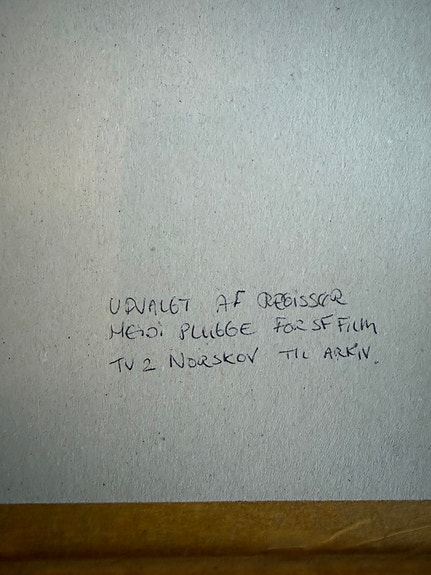 UDVALGT AF REGISSØR
HEIDI PLUGGE FOR SF FILM
TV 2 NORSKOV TIL ARKIV.